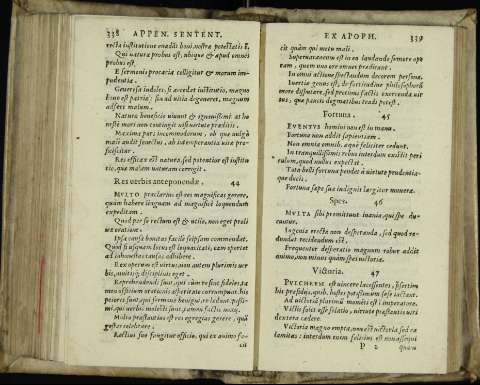 338 APPEN. SENTENT.
recta institutione euadit boni, nostræ potestatis est.
Qui natura probus est, ubique & apud omnes
probus est.
E sermone procacia colligitur & morum im-
pudentia.
Generosa indoles, si accedat institutio, magno
bono est patriæ: sin ad uitia degeneret, magnum
adfert malum.
Natura beneficis uiuunt & ignauissimi at ho
neste mori non contingit nisi uirtute præditis.
Maxima pars incommodorum, ob quæ uulgò
mali audit senectus, ab intemperantia uitæ pro-
ficiscitur.
Res efficax est natura, sed potentior est institu
tio, quæ malam naturam corrigit.
Res uerbis anteponendæ. 44
MVLTO præclarius est res magnificas gerere,
quàm habere linguam ad magnificè loquendum
expeditam.
Quod per se rectum est & utile, non eget proli
xa oratione.
Ipsa causæ bonitas facile seipsam commendat.
Quod si usquam locus est loquacitati, eam oportet
ad inhonestas causas adhibere.
Ex operum est uirtus, non autem plurimis uer
bis, aut disciplinis eget.
Reprehendendi sunt, qui cùm
peiores sunt, qui sermone benigni, re lædunt. pessi-
mi, qui uerbis molesti sunt, damno factis
Multò præstantius est res egregias gerere, quàm
gestas celebrare.
Rectius suo fungitur officio, qui ex animo fa-
cit
EX APOPH. 339
cit quàm qui metu mali.
Supernacaneum est in ea laudanda sumere ope
ram, quem non ore omnes prædicant.
In omni actione spectandum decorum personæ.
Inertia genus est, de fortitudine philosophari
more disputare, sed proximum factis exercenda uir
tus, quæ paucis dogmatibus tradi potest.
Fortuna. 45
EVENTVS homini non est in manu.
Fortuna non addit sapientiam.
Non omnia omnib. æquè feliciter cedunt.
In tranquillissimis rebus interdum existit peri
culum, quod nullus expectat.
Tota belli fortuna pendet à uirtute prudentia-
que ducis.
Fortuna sæpe suæ indignis largitur munera.
Spes. 46
MVLTA sibi promittunt inania, qui spe du-
cuntur.
Ingenia recta non desperanda, sed quod re-
dundat recidendum est.
Frequenter desperatio magnum robur addit
animo, non minus quàm spes uictoriæ.
Victoria. 47
PVLCHERR. est uincere lacessentes, præsertim
bis præsidijs, quib. hostes potissimum sese iactant.
Ad uictoriã plurimũ momẽti est imperatore.
Victis fuisse solatio, uirtute præstantis uiri
dextera cadere.
Victoria magno empta, non est uictoria, sed ca
lamitas: interdum enim satius est non assequi
P 2 quam